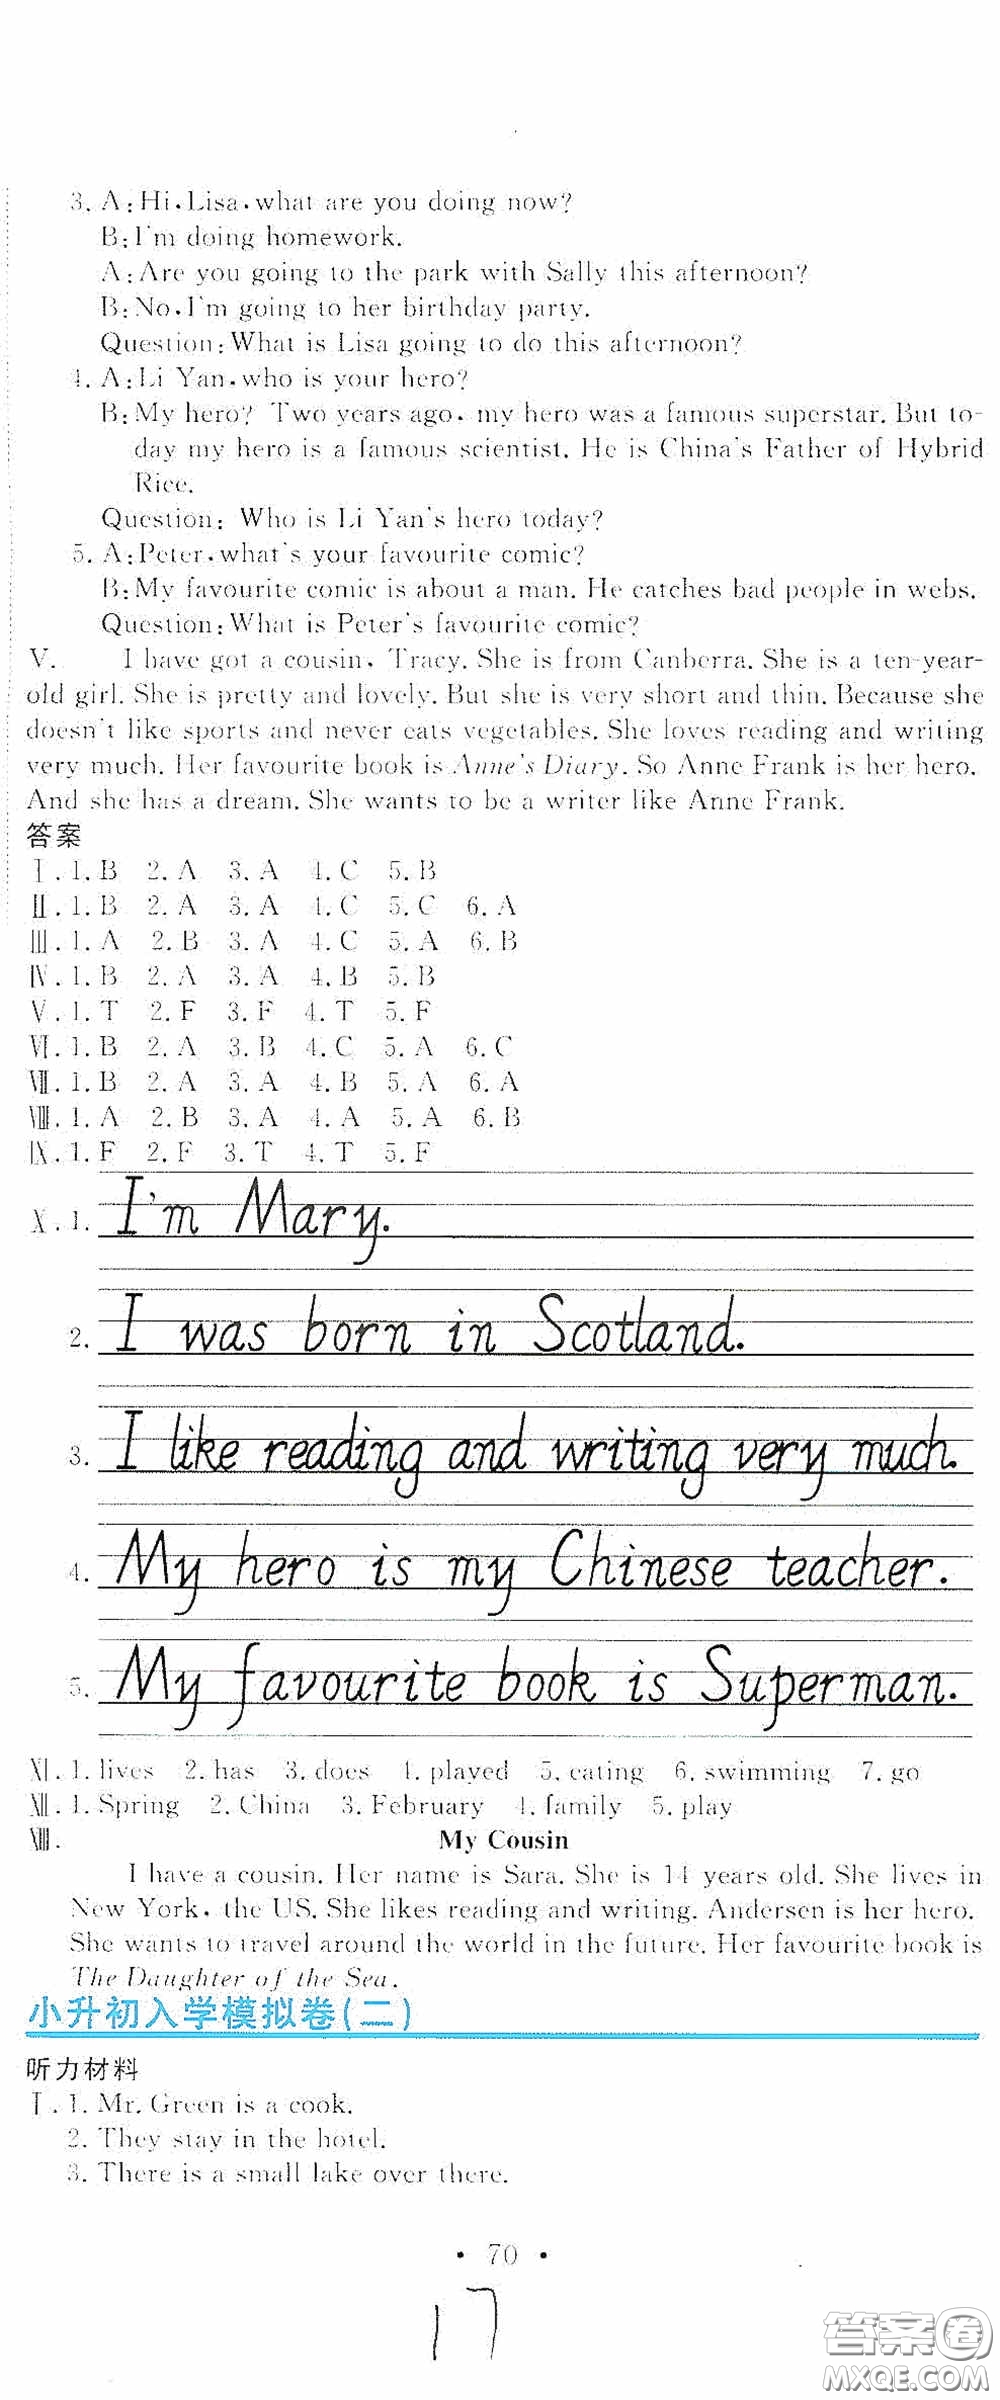 3. A:Hi,Lisa,what are you doing now?
B:I'm doing homework.
A:Are you going to the park with Sally this afternoon?
B:No,I'm going to her birthday party.
Question:What is Lisa going to do this afternoon?
4. A:Li Yan,who is your hero?
B:My hero? Two years ago, my hero was a famous superstar. But to-
day my hero is a famous scientist. He is China's Father of Hybrid
Rice.
Question: Who is Li Yan's hero today?
5. A:Peter,what's your favourite comic?
B:My favourite comic is about a man. He catches bad people in webs.
Question:What is Peter's favourite comic?
V. I have got a cousin, Tracy. She is from Canberra. She is a ten-year-
old girl. She is pretty and lovely. But she is very short and thin. Because she
doesn't like sports and never eats vegetables. She loves reading and writing
very much. Her favourite book is Anne's Diary. So Anne Frank is her hero.
And she has a dream. She wants to be a writer like Anne Frank.
答案
Ⅰ. 1. B 2. A 3. A 4. C 5. B
Ⅱ. 1. B 2. A 3. A 4. C 5. C 6. A
Ⅲ. 1. A 2. B 3. A 4. C 5. A 6. B
Ⅳ. 1. B 2. A 3. A 4. B 5. B
Ⅴ. 1. T 2. F 3. F 4. T 5. F
Ⅵ. 1. B 2. A 3. B 4. C 5. A 6. C
Ⅶ. 1. B 2. A 3. A 4. B 5. A 6. A
Ⅷ. 1. A 2. B 3. A 4. A 5. A 6. B
Ⅸ. 1. F 2. F 3. T 4. T 5. F
Ⅹ. 1. I'm Mary.
2. I was born in Scotland.
3. I like reading and writing very much.
4. My hero is my Chinese teacher.
5. My favourite book is Superman.
Ⅺ. 1. lives 2. has 3. does 4. played 5. eating 6. swimming 7. go
Ⅻ. 1. Spring 2. China 3. February 4. family 5. play
XIII. My Cousin
I have a cousin. Her name is Sara. She is 14 years old. She lives in
New York, the US. She likes reading and writing. Andersen is her hero.
She wants to travel around the world in the future. Her favourite book is
The Daughter of the Sea.
小升初入学模拟卷(二)
听力材料
Ⅰ. 1. Mr. Green is a cook.
2. They stay in the hotel.
3. There is a small lake over there.
· 70 ·
17
答案卷
MXQE.COM